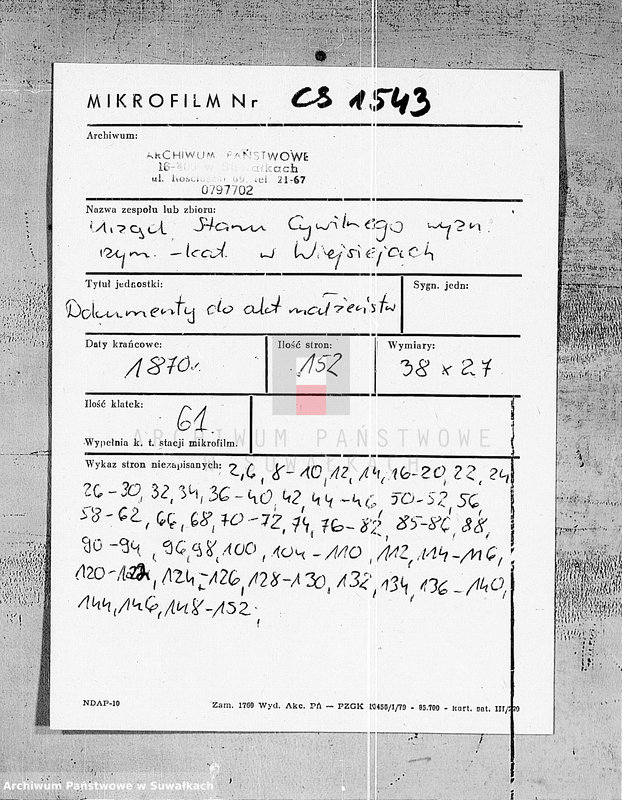 MIKROFILM Nr CS 1543
Archiwum:
ARCHIWUM PAŃSTWOWE
16-400 w Suwałkach
ul. Kościuszki 69, tel 21-67
0797702
Nazwa zespołu lub zbioru:
Urząd Stanu Cywilnego wyzn.
rzym.-kat. w Wiejsiejach
Tytuł jednostki:
Sygn. jedn:
Dokumenty do akt małżeństw
Daty krańcowe:
Ilość stron:
Wymiary:
1870r.
152
38 x 27
Ilość klatek:
61
ARCHIWUM PAŃSTWOWE
W SUWAŁKACH
Wypełnia k. t. stacji mikrofilm.
Wykaz stron niezapisanych: 2,6, 8-10, 12, 14, 16-20, 22, 24
26-30, 32, 34, 36-40, 42, 44-46, 50-52, 56,
58-62, 66, 68, 70-72, 74, 76-82, 85-86, 88,
90-94, 96, 98, 100, 104-110, 112, 114-116,
120-122, 124-126, 128-130, 132, 134, 136-140,
144, 146, 148-152,
NDAP-10
Zam. 1760 Wyd. Akc. Pń — PZGK 10456/1/79 - 85.700 - kart. sat. III/220
Archiwum Państwowe w Suwałkach